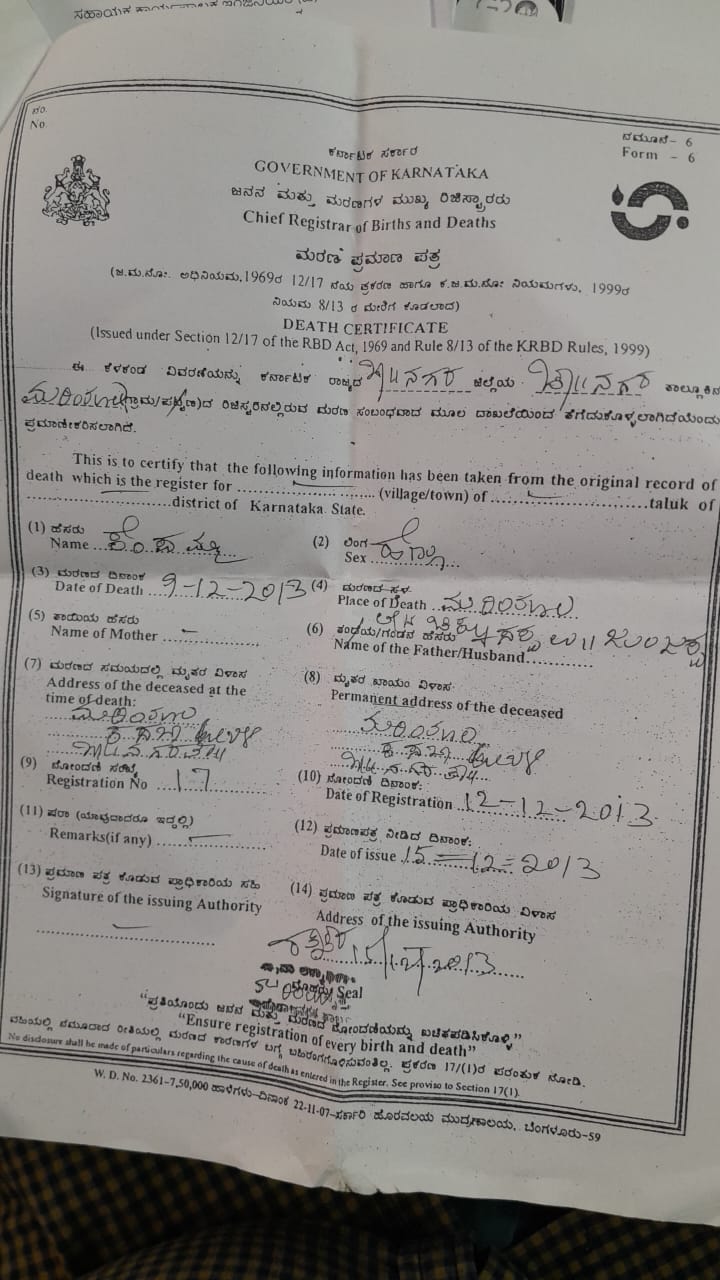 ಸಹಾಯಕ ಕಾರ್ಯನಿರ್ವಾಹಕ
ನಂ.
No.
ನಮೂನೆ- 6
Form - 6
ಕರ್ನಾಟಕ ಸರ್ಕಾರ
GOVERNMENT OF KARNATAKA
ಜನನ ಮತ್ತು ಮರಣಗಳ ಮುಖ್ಯ ರಿಜಿಸ್ಟ್ರಾರರು
Chief Registrar of Births and Deaths
ಮರಣ ಪ್ರಮಾಣ ಪತ್ರ
(ಜ.ಮ.ನೋಂ. ಅಧಿನಿಯಮ,1969ರ 12/17 ನೆಯ ಪ್ರಕರಣ ಹಾಗೂ ಕ.ಜ.ಮ.ನೋಂ ನಿಯಮಗಳು, 1999ರ
ನಿಯಮ 8/13 ರ ಮೇರೆಗೆ ಕೊಡಲಾದ)
DEATH CERTIFICATE
(Issued under Section 12/17 of the RBD Act, 1969 and Rule 8/13 of the KRBD Rules, 1999)
ಈ ಕೆಳಕಂಡ ವಿವರಣೆಯನ್ನು ಕರ್ನಾಟಕ ರಾಜ್ಯದ ಚಾ॥ನಗರ ಜಿಲ್ಲೆಯ ಚಾ॥ನಗರ ತಾಲ್ಲೂಕಿನ
(ಗ್ರಾಮ/ಪಟ್ಟಣ)ದ ರಿಜಿಸ್ಟರಿನಲ್ಲಿರುವ ಮರಣ ಸಂಬಂಧವಾದ ಮೂಲ ದಾಖಲೆಯಿಂದ ತೆಗೆದುಕೊಳ್ಳಲಾಗಿದೆಯೆಂದು
ಪ್ರಮಾಣೀಕರಿಸಲಾಗಿದೆ.
This is to certify that the following information has been taken from the original record of
death which is the register for .................... (village/town) of ....................taluk of
....................district of Karnataka State.
(1) ಹೆಸರು
Name
(2) ಲಿಂಗ
Sex ಹೆಣ್ಣು
(3) ಮರಣದ ದಿನಾಂಕ
Date of Death 9-12-2013
(4) ಮರಣದ ಸ್ಥಳ
Place of Death
(5) ತಾಯಿಯ ಹೆಸರು
Name of Mother –
(6) ತಂದೆಯ/ಗಂಡನ ಹೆಸರು
Name of the Father/Husband............
(7) ಮರಣದ ಸಮಯದಲ್ಲಿ ಮೃತರ ವಿಳಾಸ
Address of the deceased at the
time of death:
(8) ಮೃತರ ಖಾಯಂ ವಿಳಾಸ
Permanent address of the deceased
(9) ನೋಂದಣಿ ಸಂಖ್ಯೆ
Registration No 17
(10) ನೋಂದಣಿ ದಿನಾಂಕ:
Date of Registration 12-12-2013
(11) ಷರಾ (ಯಾವುದಾದರೂ ಇದ್ದಲ್ಲಿ)
Remarks(if any) –
(12) ಪ್ರಮಾಣಪತ್ರ ನೀಡಿದ ದಿನಾಂಕ:
Date of issue 15=12=2013
(13) ಪ್ರಮಾಣ ಪತ್ರ ಕೊಡುವ ಪ್ರಾಧಿಕಾರಿಯ ಸಹಿ
Signature of the issuing Authority
(14) ಪ್ರಮಾಣ ಪತ್ರ ಕೊಡುವ ಪ್ರಾಧಿಕಾರಿಯ ವಿಳಾಸ
Address of the issuing Authority
Seal
“ಪ್ರತಿಯೊಂದು ಜನನ ಮತ್ತು ಮರಣದ ನೋಂದಣಿಯನ್ನು ಖಚಿತಪಡಿಸಿಕೊಳ್ಳಿ”
“Ensure registration of every birth and death”
ವಹಿಯಲ್ಲಿ ನಮೂದಾದ ರೀತಿಯಲ್ಲಿ ಮರಣದ ಕಾರಣಗಳ ಬಗ್ಗೆ ಬಹಿರಂಗಗೊಳಿಸುವಂತಿಲ್ಲ. ಪ್ರಕರಣ 17/(1)ರ ಪರಂತುಕ ನೋಡಿ.
No disclosure shall be made of particulars regarding the cause of death as entered in the Register. See proviso to Section 17(1).
W. D. No. 2361–7,50,000 ಹಾಳೆಗಳು–ದಿನಾಂಕ 22-11-07–ಸರ್ಕಾರಿ ಹೊರವಲಯ ಮುದ್ರಣಾಲಯ, ಬೆಂಗಳೂರು-59